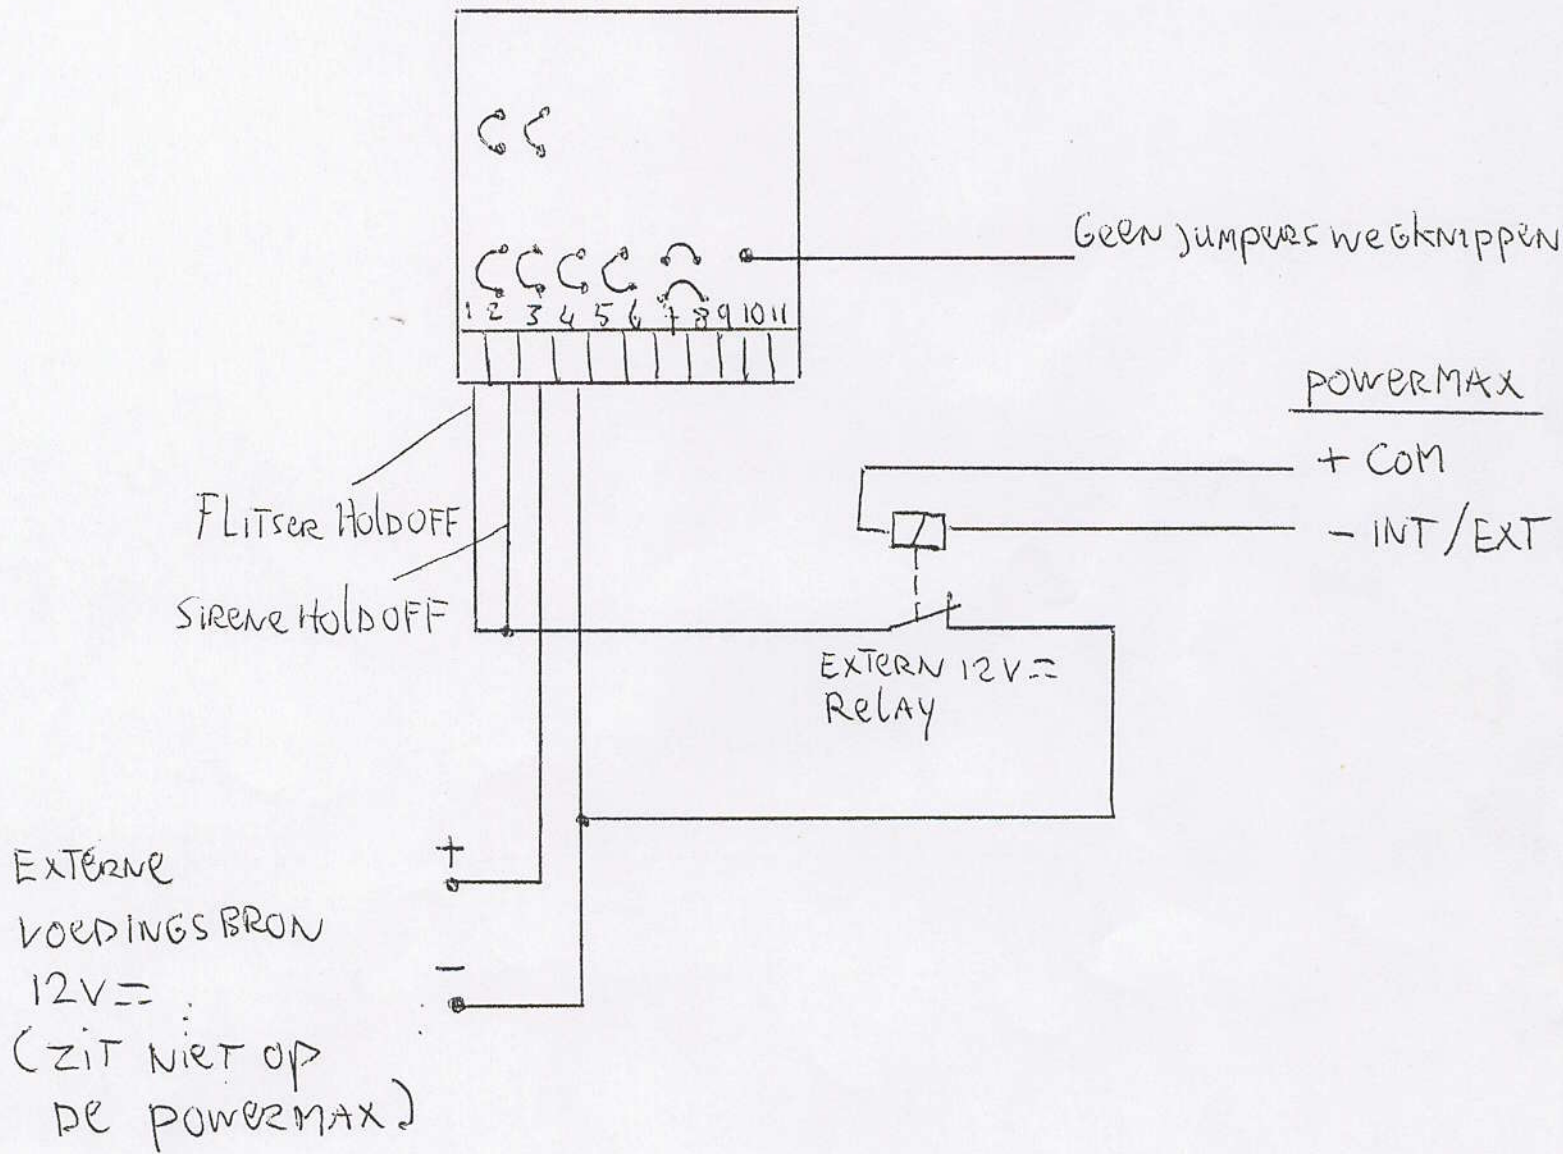 Geen jumpers wegknippen
1 2 3 4 5 6 7 8 9 10 11
POWERMAX
+ COM
- INT/EXT
FLITSER HOLDOFF
SIRENE HOLDOFF
EXTERN 12V=
Relay
+
EXTERNE
VOEDINGSBRON
12V=
-
(ZIT NIET OP
DE POWERMAX)